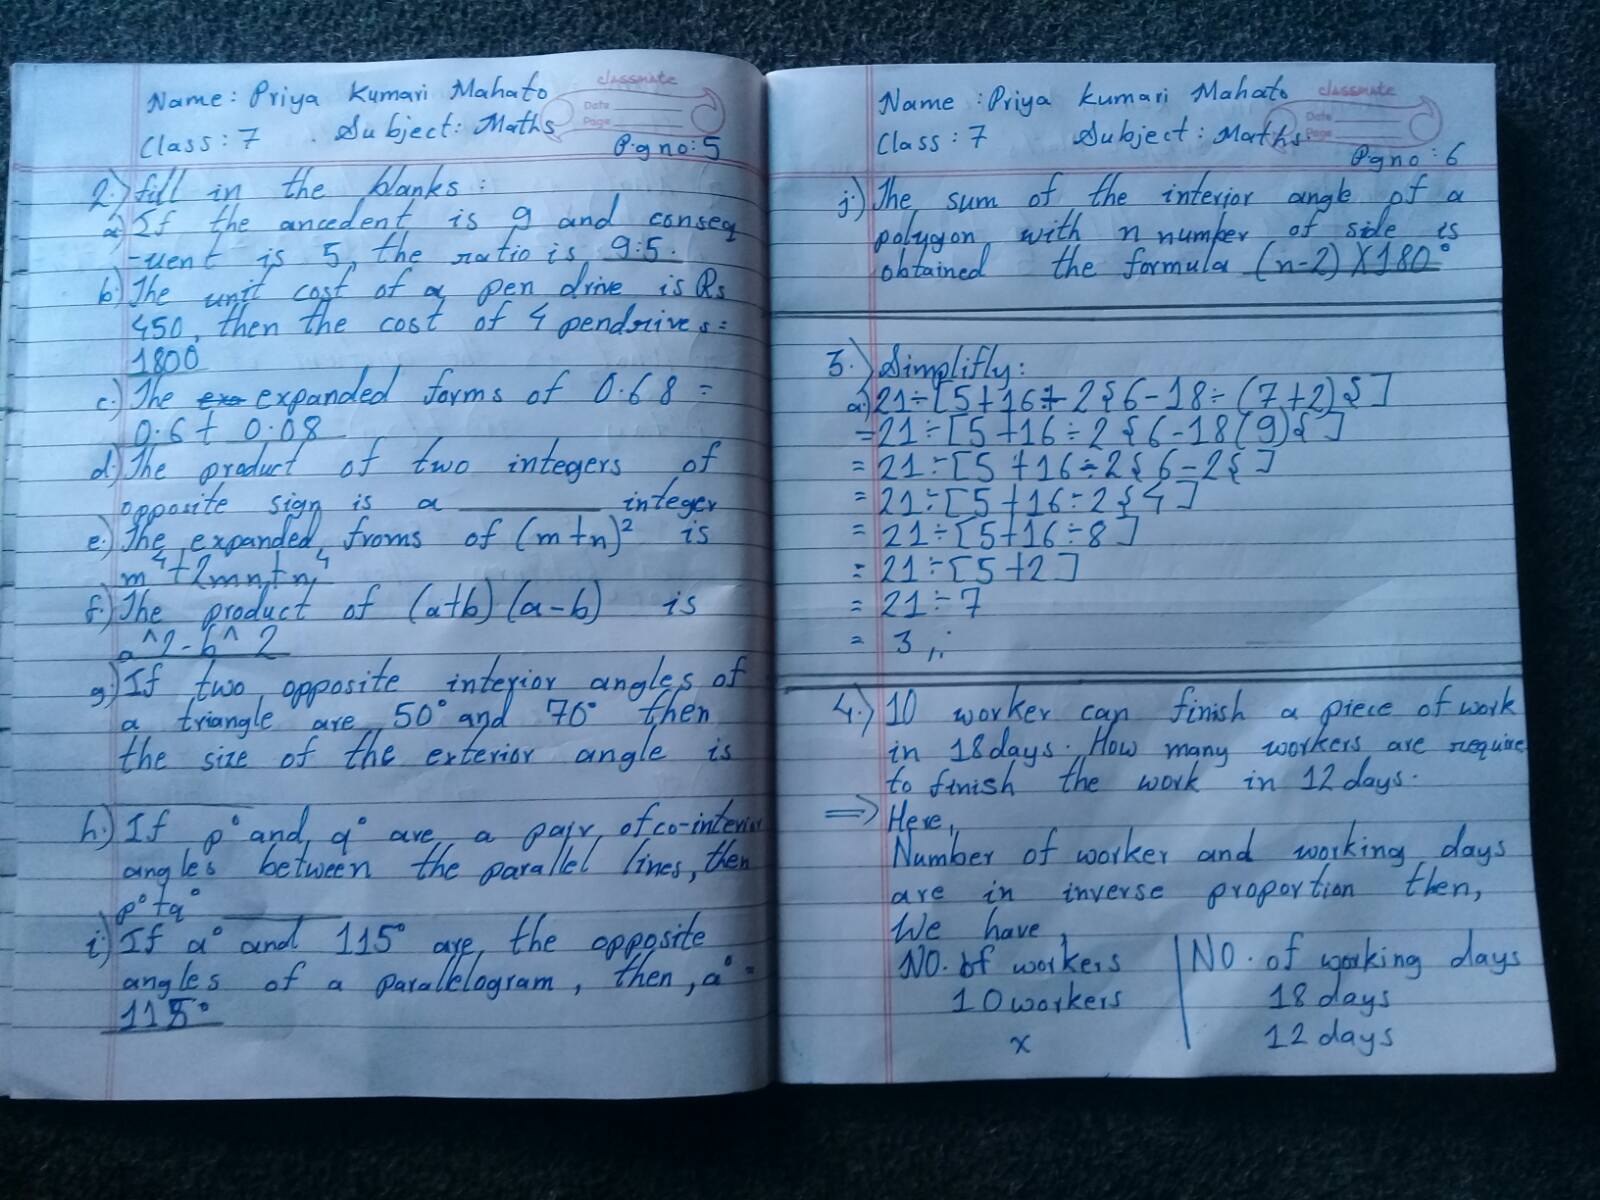 classmate
Date
Page
Name : Priya Kumari Mahato
Class : 7 . Subject : Maths
Pgno : 5
2.) fill in the blanks :
a.) If the ancedent is 9 and conseq
-uent is 5, the ratio is 9:5.
b.) The unit cost of a pen drive is Rs
450, then the cost of 4 pendrives =
1800
c.) The expanded forms of 0.68 =
0.6 + 0.08
d.) The product of two integers of
opposite sign is a ________ integer
e.) The expanded froms of (m+n)² is
m⁴+2mn+n⁴
f.) The product of (a+b) (a-b) is
a^2-b^2
g.) If two opposite interior angles of
a triangle are 50° and 70° then
the size of the exterior angle is
________
h.) If p° and q° are a pair of co-interior
angles between the parallel lines, then
p°+q° ________
i.) If a° and 115° are the opposite
angles of a parallelogram, then, a° =
115°
classmate
Date
Page
Name : Priya Kumari Mahato
Class : 7 Subject : Maths.
Pgno : 6
j.) The sum of the interior angle of a
polygon with n number of side is
obtained the formula (n-2) X180°
3.) Simplifly :
a.) 21÷[5+16÷2{6-18÷(7+2)}]
=21÷[5+16÷2{6-18(9)}]
= 21÷[5+16÷2{6-2}]
= 21÷[5+16÷2{4]
= 21÷[5+16÷8]
= 21÷[5+2]
= 21÷7
= 3
4.) 10 worker can finish a piece of work
in 18days. How many workers are require
to finish the work in 12 days.
=> Here,
Number of worker and working days
are in inverse proportion then,
We have,
NO. of workers | NO. of working days
10workers 18 days
x 12 days